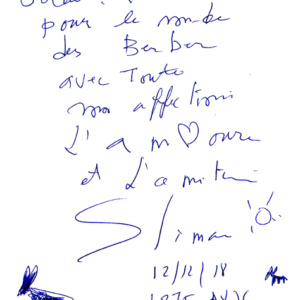 pour le monde
des Berber
avec Toute
mon affection
L'amour
et L'amitié
Sliman
12/12/18